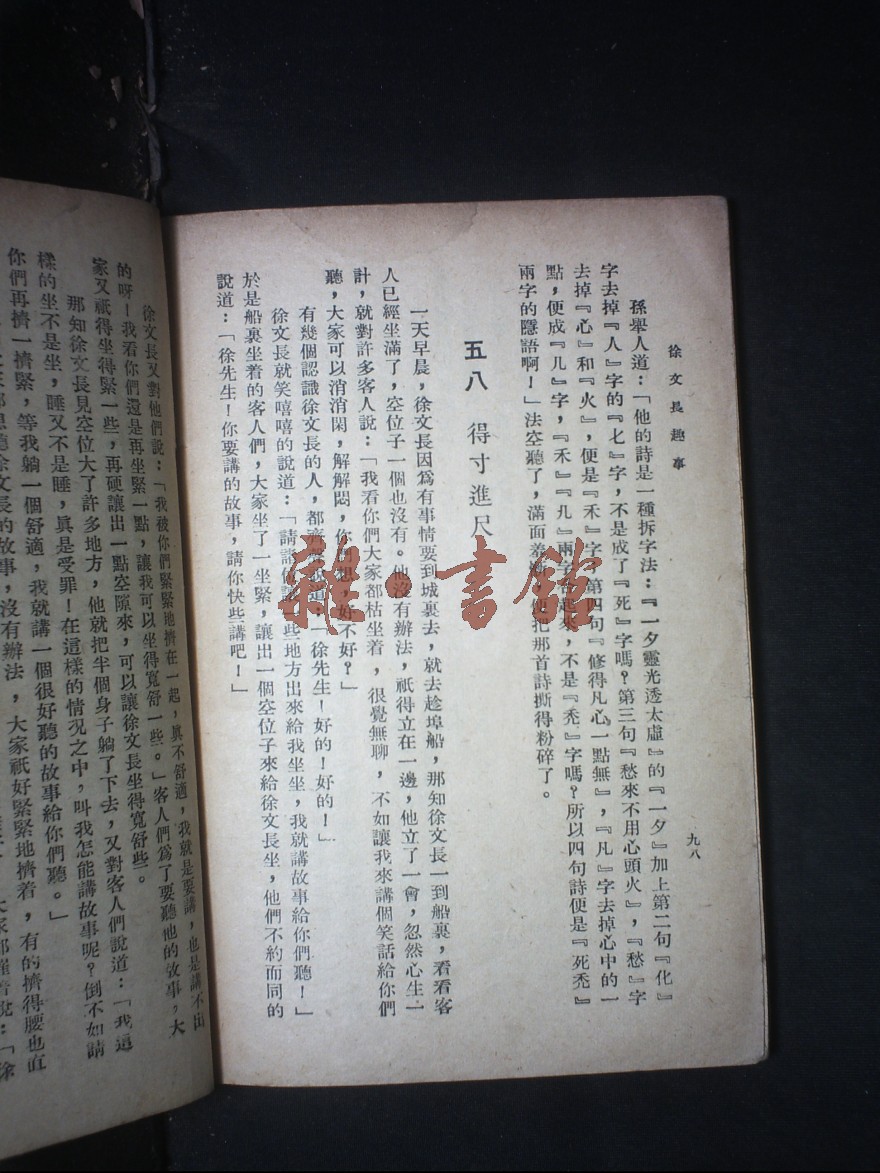 徐文長趣事
九八
孫舉人道：「他的詩是一種拆字法：『一夕靈光透太虛』的『一夕』加上第二句『化』
字去掉『人』字的『匕』字，不是成了『死』字嗎？第三句『愁來不用心頭火』，『愁』字
去掉『心』和『火』，便是『禾』字，第四句『修得凡心一點無』，『凡』字去掉心中的一
點，便成『几』字，『禾』『几』兩字合起來，不是『禿』字嗎？所以四句詩便是『死禿』
兩字的隱語啊！」法空聽了，滿面羞慚，便把那首詩撕得粉碎了。
五八　得寸進尺
一天早晨，徐文長因爲有事情要到城裏去，就去趁埠船，那知徐文長一到船裏，看看客
人已經坐滿了，空位子一個也沒有。他沒有辦法，祇得立在一邊，他立了一會，忽然心生一
計，就對許多客人說：「我看你們大家都枯坐着，很覺無聊，不如讓我來講個笑話給你們
聽，大家可以消消閑，解解悶，你們想，好不好？」
有幾個認識徐文長的人，都齊聲說道：「徐先生！好的！好的！」
徐文長就笑嘻嘻的說道：「請諸位讓一些地方出來給我坐坐，我就講故事給你們聽！」
於是船裏坐着的客人們，大家坐了一坐緊，讓出一個空位子來給徐文長坐，他們不約而同的
說道：「徐先生！你要講的故事，請你快些講吧！」
徐文長又對他們說：「我被你們緊緊地擠在一起，眞不舒適，我就是要講，也是講不出
的呀！我看你們還是再坐緊一點，讓我可以坐得寬舒一些。」客人們爲了要聽他的故事，大
家又祇得坐得緊一些，再硬讓出一點空隙來，可以讓徐文長坐得寬舒些。
那知徐文長見空位大了許多地方，他就把半個身子躺了下去，又對客人們說道：「我這
樣的坐不是坐，睡又不是睡，眞是受罪！在這樣的情况之中，叫我怎能講故事呢？倒不如請
你們再擠一擠緊，等我躺一個舒適，我就講一個很好聽的故事給你們聽。」
聽徐文長的故事，沒有辦法，大家祇好緊緊地擠着，有的擠得腰也直
說：「徐
雜·書館